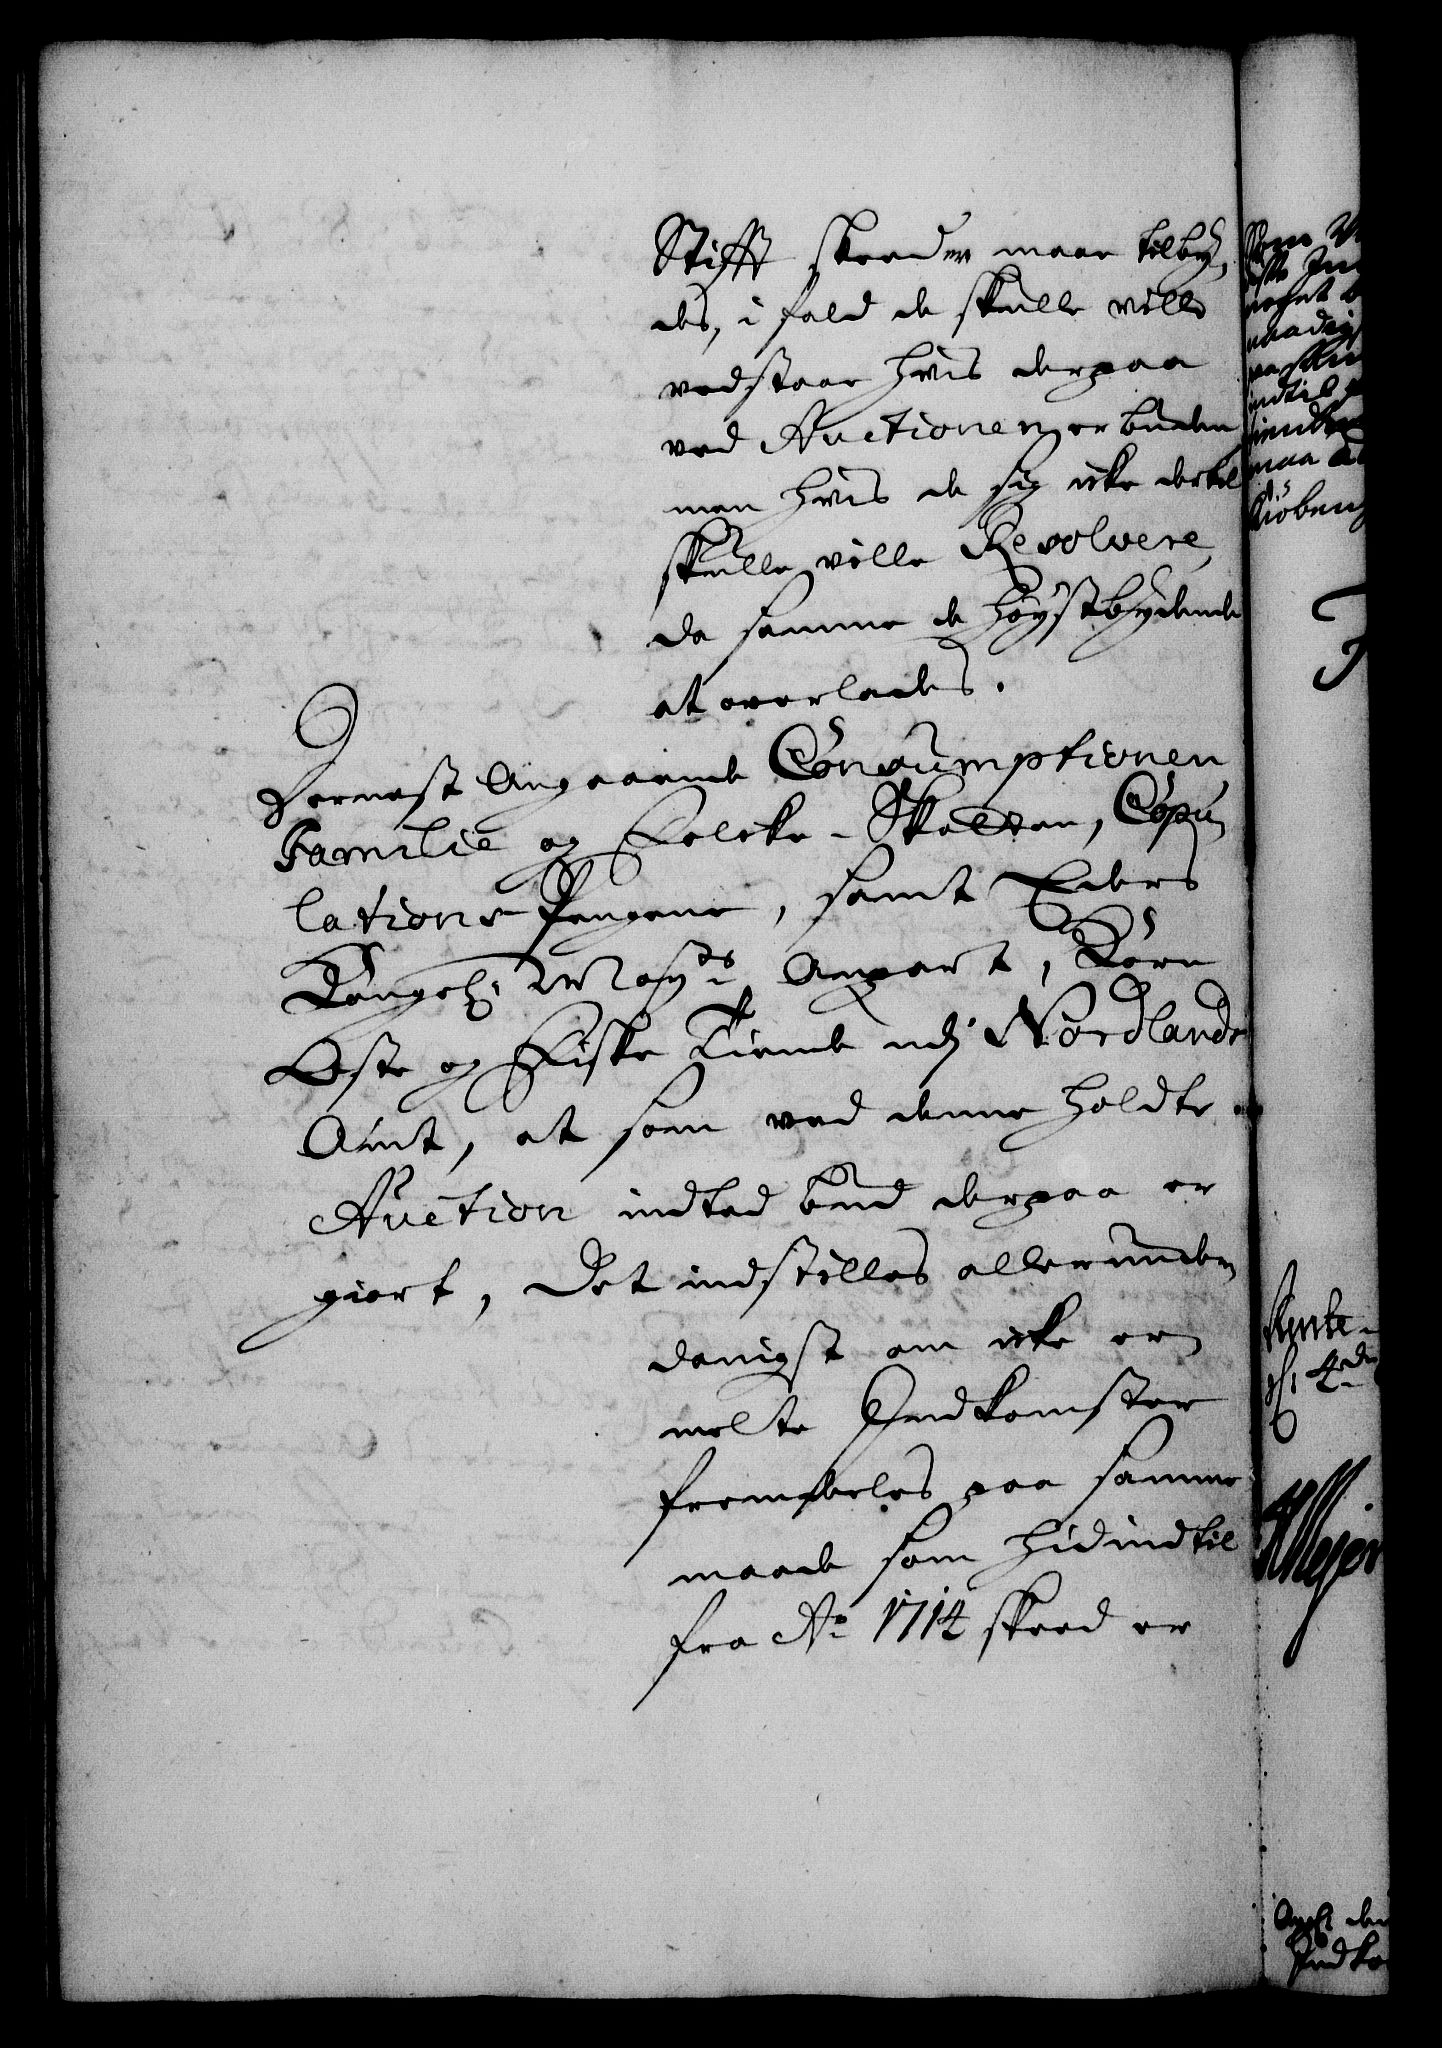 Stifft skeed er maae tilby,
des, i fald de skulle ville
vedstaae hvis derpaa
ved Auctionen er buden
men hvis de sig icke dertil
skulle ville Resolvere,
da samme de høystbydende
at overlades.
Dernest Angaaende Consumptionen
Familie og Folcke-Skatten, Copu
lations Pengene, samt Eders
Kongel: Mayts Anpart, Korn
Oste og Fiske Tiende udj Nordlands
Amt, at som ved denne holdte
Auction indted bud derpaa er
giort, Det indstilles allerunder
danigst om icke er
melte Indkomster
fremdeeles paa samme
maade som hidindtil
fra Ao 1714 skeed er